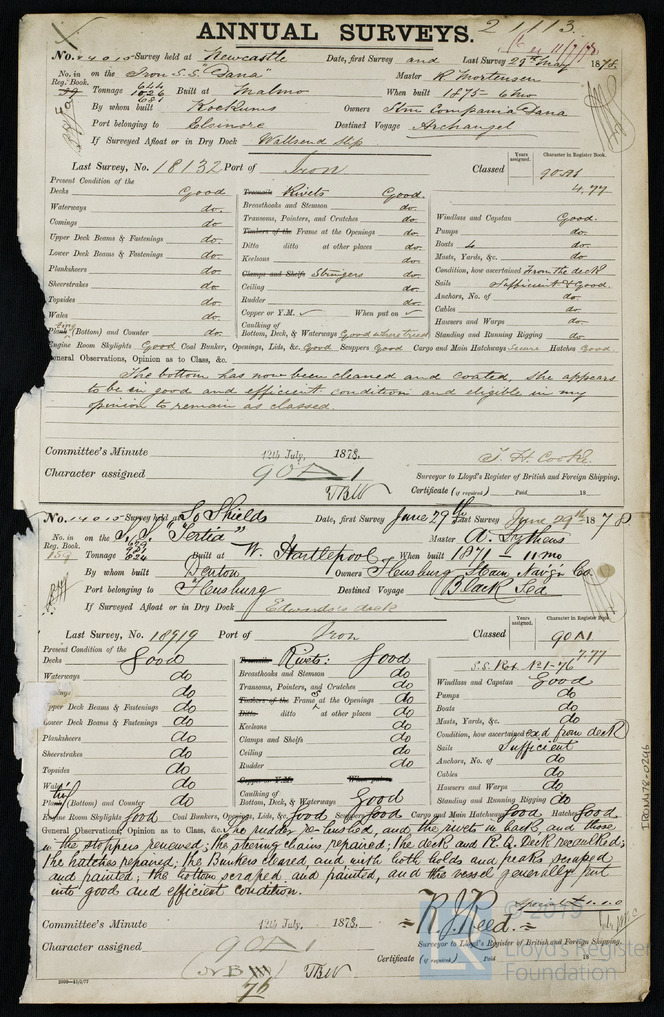 ANNUAL SURVEYS. 21113
No. Survey held at Newcastle Date, first Survey and Last Survey 29th May 1878
No. in Reg. Book. on the Iron S.S. "Dana" Master R Mortensen
Tonnage 644 1026 681 Built at Malmo When built 1875 - 6 mo
By whom built Kockums Owners Stm Compania Dana
Port belonging to Elsinore Destined Voyage Archangel
If Surveyed Afloat or in Dry Dock Wallsend Slip
Last Survey, No. 18132 Port of Iron Classed Years assigned. Character in Register Book. 90A1
4.77
Present Condition of the
Decks Good
Waterways do.
Comings do.
Upper Deck Beams & Fastenings do.
Lower Deck Beams & Fastenings do.
Planksheers do.
Sheerstrakes do.
Topsides do.
Wales do.
Plank (Bottom) and Counter do.
Treenails Rivets Good.
Breasthooks and Stemson do.
Transoms, Pointers, and Crutches do.
Timbers of the Frame at the Openings do.
Ditto ditto at other places do.
Keelsons do.
Clamps and Shelfs Stringers do.
Ceiling do.
Rudder do.
Copper or Y.M. When put on
Caulking of Bottom, Deck, & Waterways Good where tried
Windlass and Capstan Good.
Pumps do.
Boats 4 do.
Masts, Yards, &c. do.
Condition, how ascertained From the deck
Sails Sufficient & Good.
Anchors, No. of do.
Cables do.
Hawsers and Warps do.
Standing and Running Rigging do.
Engine Room Skylights Good Coal Bunker, Openings, Lids, &c. Good Scuppers Good Cargo and Main Hatchways Secure Hatches Good.
General Observations, Opinion as to Class, &c.
The bottom has now been cleaned and coated. She appears
to be in good and efficient condition and eligible in my
opinion to remain as classed.
Committee's Minute 12th July, 1878.
T. H. Cooke.
Character assigned 90A1
Surveyor to Lloyd's Register of British and Foreign Shipping.
Certificate (if required) Paid 18
No. Survey held at So Shields Date, first Survey June 29th Last Survey June 29th 1878
No. in Reg. Book. on the S.S. "Tertia" Master
Tonnage Built at W. Hartlepool When built 1871 - 11 mo
By whom built Denton Owners Flensburg Steam Nav'g'n Co.
Port belonging to Flensburg Destined Voyage Black Sea
If Surveyed Afloat or in Dry Dock Edwards's dock
Last Survey, No. 18919 Port of Iron Classed Years assigned. Character in Register Book. 90A1
7.77
S.S. No 1-76
Present Condition of the
Decks Good
Waterways do
Comings do
Upper Deck Beams & Fastenings do
Lower Deck Beams & Fastenings do
Planksheers do
Sheerstrakes do
Topsides do
Wales do
Plank (Bottom) and Counter do
Treenails Rivets: Good
Breasthooks and Stemson do
Transoms, Pointers, and Crutches do
Timbers of the Frames at the Openings do
Ditto ditto at other places do
Keelsons do
Clamps and Shelfs do
Ceiling do
Rudder do
Copper or Y.M. When put on
Caulking of Bottom, Deck, & Waterways Good
Windlass and Capstan Good
Pumps do
Boats do
Masts, Yards, &c. do
Condition, how ascertained ex'd from deck
Sails Sufficient
Anchors, No. of do
Cables do
Hawsers and Warps do
Standing and Running Rigging do
Engine Room Skylights Good Coal Bunkers, Openings, Lids, &c. Good Scuppers Good Cargo and Main Hatchways Good Hatches Good
General Observations, Opinion as to Class, &c. The rudder re-bushed, and the rivets in back, and those
in the stoppers renewed; the steering chains repaired; the deck and R.Q. Deck recaulked;
the hatches repaired; the Bunkers cleared and with both holds and peaks scraped
and painted; the bottom scraped and painted, and the vessel generally put
into good and efficient condition.
Committee's Minute 12th July, 1878.
R. J. Reed.
Character assigned 90A1
Surveyor to Lloyd's Register of British and Foreign Shipping.
Certificate (if required) Paid 18
76
IRON478-0296
© 2019
Lloyd's Register
Foundation